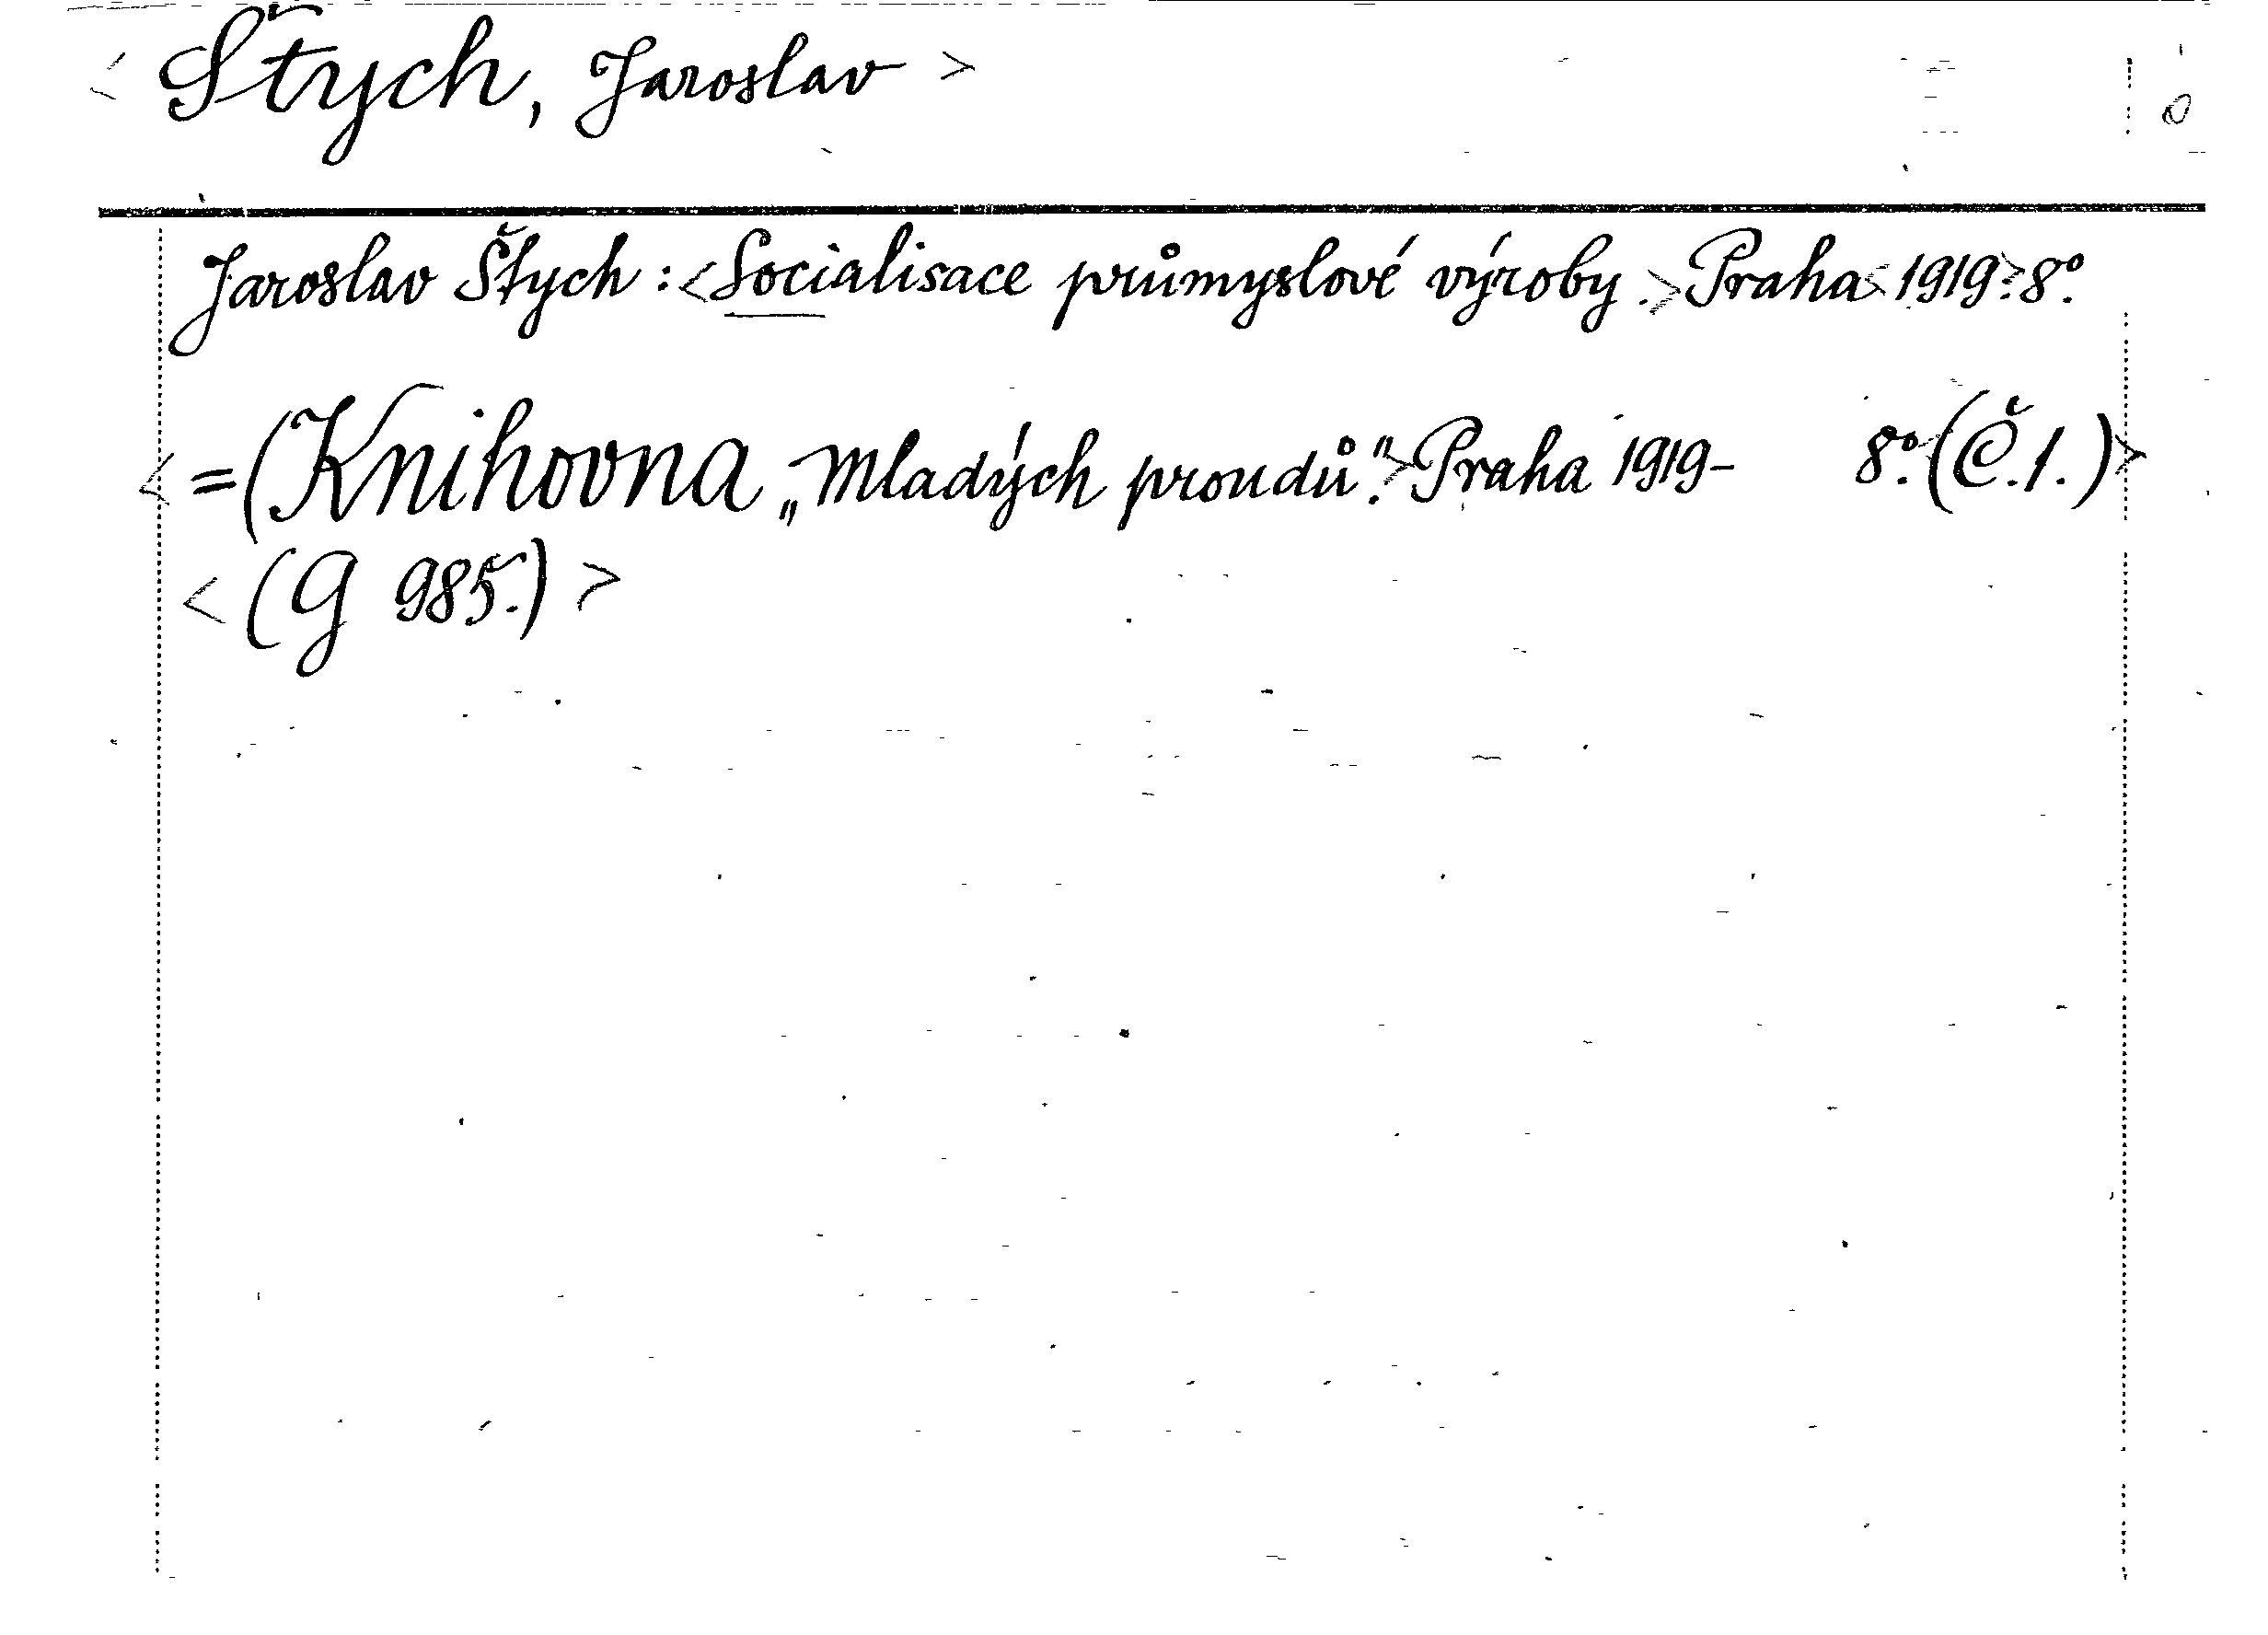 < Štych, Jaroslav > 0
Jaroslav Štych : <Socialisace průmyslové výroby.> Praha <1919>. 8°.
< = (Knihovna „Mladých proudů".> Praha 1919- 8°. <(Č.1.)>
< (G 985.) >